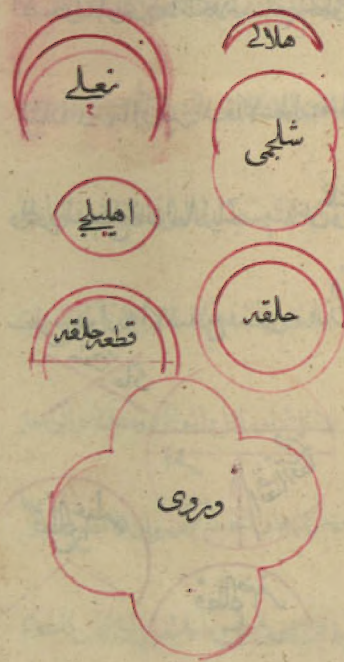 هلالے
نعلے
شلجمی
اهلیلجے
حلقه
قطعه حلقه
وروی